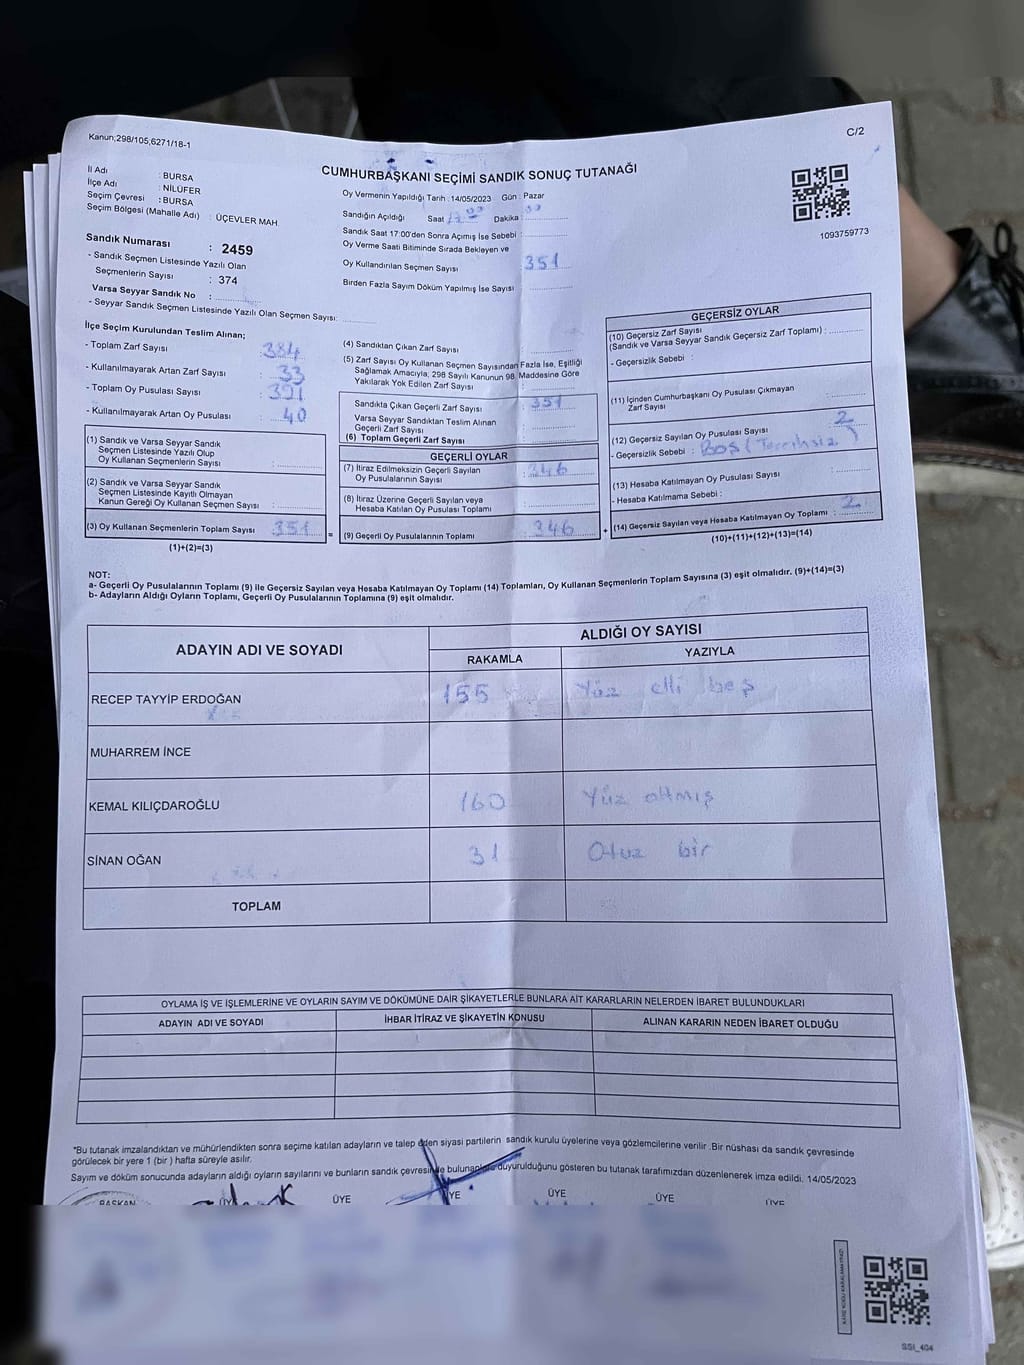 Kanun;298/105,6271/18-1
C/2
CUMHURBAŞKANI SEÇİMİ SANDIK SONUÇ TUTANAĞI
İl Adı : BURSA
İlçe Adı : NİLÜFER
Seçim Çevresi : BURSA
Seçim Bölgesi (Mahalle Adı) : ÜÇEVLER MAH.
Sandık Numarası : 2459
- Sandık Seçmen Listesinde Yazılı Olan
Seçmenlerin Sayısı : 374
Varsa Seyyar Sandık No :
- Seyyar Sandık Seçmen Listesinde Yazılı Olan Seçmen Sayısı:
Oy Vermenin Yapıldığı Tarih : 14/05/2023 Gün : Pazar
Sandığın Açıldığı Saat Dakika :
Sandık Saat 17:00'den Sonra Açımış İse Sebebi :
Oy Verme Saati Bitiminde Sırada Bekleyen ve
Oy Kullandırılan Seçmen Sayısı : 351
Birden Fazla Sayım Döküm Yapılmış İse Sayısı :
1093759773
İlçe Seçim Kurulundan Teslim Alınan;
- Toplam Zarf Sayısı : 384
- Kullanılmayarak Artan Zarf Sayısı : 33
- Toplam Oy Pusulası Sayısı : 391
- Kullanılmayarak Artan Oy Pusulası : 40
(1) Sandık ve Varsa Seyyar Sandık
Seçmen Listesinde Yazılı Olup
Oy Kullanan Seçmenlerin Sayısı :
(2) Sandık ve Varsa Seyyar Sandık
Seçmen Listesinde Kayıtlı Olmayan
Kanun Gereği Oy Kullanan Seçmen Sayısı :
(3) Oy Kullanan Seçmenlerin Toplam Sayısı : 351
(1)+(2)=(3)
(4) Sandıktan Çıkan Zarf Sayısı :
(5) Zarf Sayısı Oy Kullanan Seçmen Sayısından Fazla İse, Eşitliği
Sağlamak Amacıyla, 298 Sayılı Kanunun 98. Maddesine Göre
Yakılarak Yok Edilen Zarf Sayısı :
Sandıkta Çıkan Geçerli Zarf Sayısı : 351
Varsa Seyyar Sandıktan Teslim Alınan
Geçerli Zarf Sayısı :
(6) Toplam Geçerli Zarf Sayısı :
GEÇERLİ OYLAR
(7) İtiraz Edilmeksizin Geçerli Sayılan
Oy Pusulalarının Sayısı : 346
(8) İtiraz Üzerine Geçerli Sayılan veya
Hesaba Katılan Oy Pusulası Toplamı :
= (9) Geçerli Oy Pusulalarının Toplamı : 346 +
GEÇERSİZ OYLAR
(10) Geçersiz Zarf Sayısı
(Sandık ve Varsa Seyyar Sandık Geçersiz Zarf Toplamı) :
- Geçersizlik Sebebi :
(11) İçinden Cumhurbaşkanı Oy Pusulası Çıkmayan
Zarf Sayısı :
(12) Geçersiz Sayılan Oy Pusulası Sayısı : 2
- Geçersizlik Sebebi : Boş (Tercihsiz)
(13) Hesaba Katılmayan Oy Pusulası Sayısı :
- Hesaba Katılmama Sebebi :
(14) Geçersiz Sayılan veya Hesaba Katılmayan Oy Toplamı : 2
(10)+(11)+(12)+(13)=(14)
NOT:
a- Geçerli Oy Pusulalarının Toplamı (9) ile Geçersiz Sayılan veya Hesaba Katılmayan Oy Toplamı (14) Toplamları, Oy Kullanan Seçmenlerin Toplam Sayısına (3) eşit olmalıdır. (9)+(14)=(3)
b- Adayların Aldığı Oyların Toplamı, Geçerli Oy Pusulalarının Toplamına (9) eşit olmalıdır.
ADAYIN ADI VE SOYADI ALDIĞI OY SAYISI
RAKAMLA YAZIYLA
RECEP TAYYİP ERDOĞAN 155 Yüz elli beş
MUHARREM İNCE
KEMAL KILIÇDAROĞLU 160 Yüz altmış
SİNAN OĞAN 31 Otuz bir
TOPLAM
OYLAMA İŞ VE İŞLEMLERİNE VE OYLARIN SAYIM VE DÖKÜMÜNE DAİR ŞİKAYETLERLE BUNLARA AİT KARARLARIN NELERDEN İBARET BULUNDUKLARI
ADAYIN ADI VE SOYADI İHBAR İTİRAZ VE ŞİKAYETİN KONUSU ALINAN KARARIN NEDEN İBARET OLDUĞU
*Bu tutanak imzalandıktan ve mühürlendikten sonra seçime katılan adayların ve talep eden siyasi partilerin sandık kurulu üyelerine veya gözlemcilerine verilir .Bir nüshası da sandık çevresinde
görülecek bir yere 1 (bir ) hafta süreyle asılır.
Sayım ve döküm sonucunda adayların aldığı oyların sayılarını ve bunların sandık çevresinde duyurulduğunu gösteren bu tutanak tarafımızdan düzenlenerek imza edildi. 14/05/2023
BAŞKAN ÜYE ÜYE ÜYE ÜYE ÜYE ÜYE
SSI_404